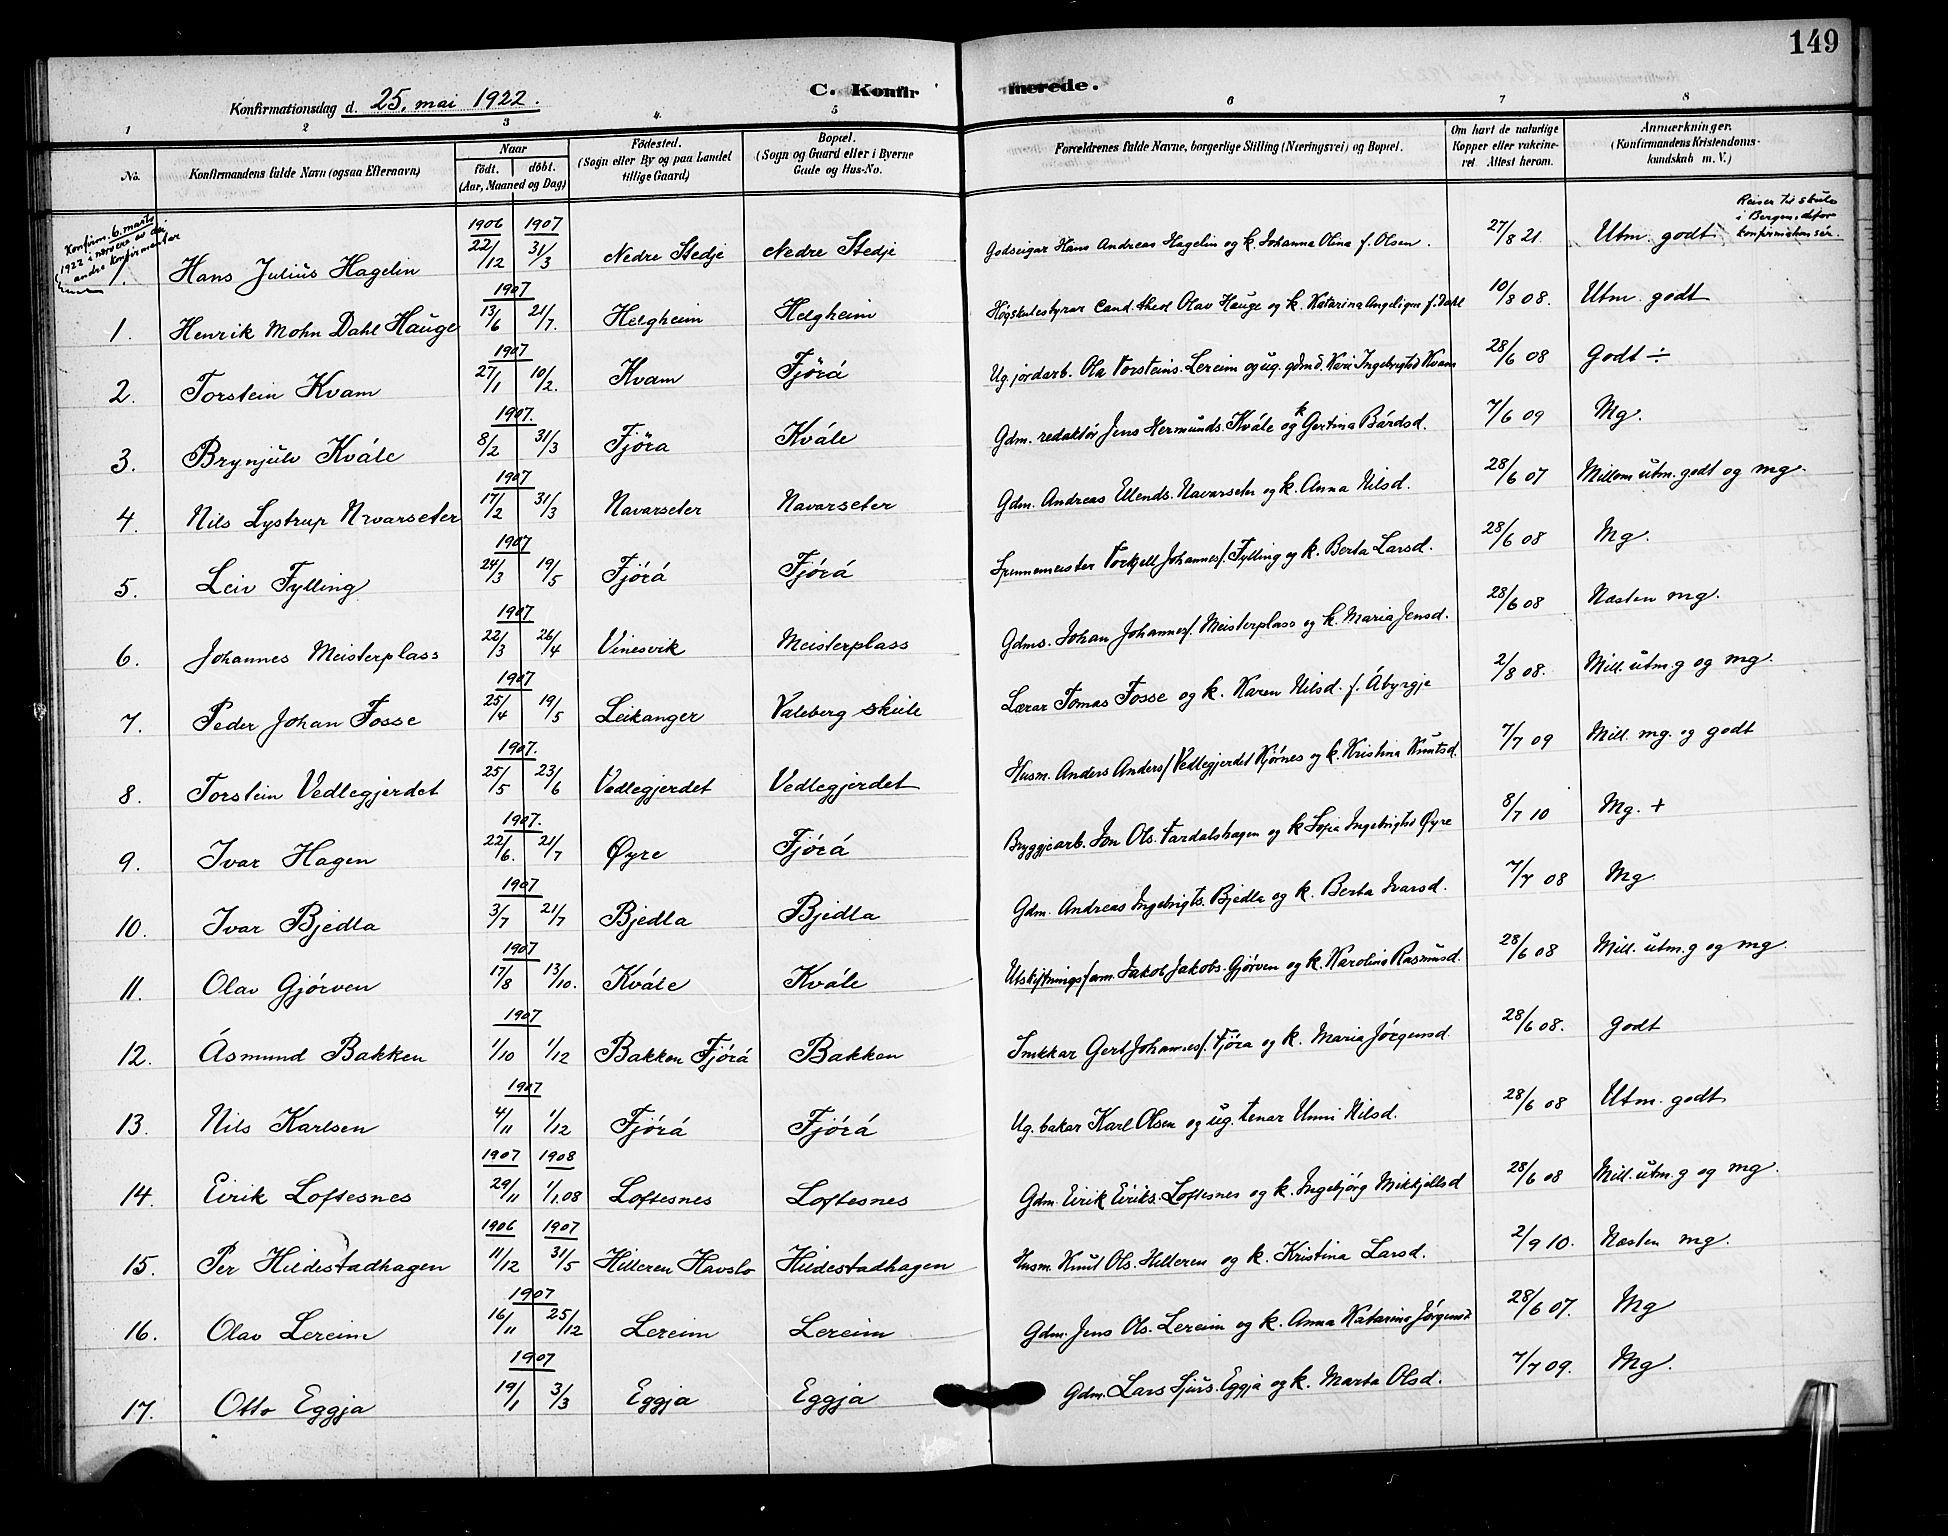 149
Konfirmationsdag d. 25. mai 1922.
C. Konfirmerede.
1 2 3 4. 5 6 7 8
No. Konfirmandens fulde Navn (ogsaa Efternavn) Naar født. døbt. (Aar, Maaned og Dag) Fødested. (Sogn eller By og paa Landet tillige Gaard) Bopæl. (Sogn og Gaard eller i Byerne Gade og Hus-No. Forældrenes fulde Navne, borgerlige Stilling (Næringsvei) og Bopæl. Om havt de naturlige Kopper eller vakcineret. Attest herom. Anmærkninger. (Konfirmandens Kristendomskundskab m. V.)
Konfirm. 6. marts
1922 i nærvere av dei
andre konfirmantar
1. Hans Julius Hagelin 1906 22/12 1907 31/3 Nedre Stedje Nedre Stedje Godseigar Hans Andreas Hagelin og k. Johanna Olina f. Olsen. 27/8 21. Utm. godt. Reiser til skule i Bergen, difor konfirmation sér.
1. Henrik Mohn Dahl Hauge 1907 13/6 21/7. Helgheim Helgheim Högskulestyrar Cand. theol Olav Hauge og k. Katarina Angeliqua f. Dahl 10/8 08. Utm. godt
2. Torstein Kvam 1907 27/1 10/2. Kvam Fjörá Ug. jordarb. Ola Torsteins. Lereim og ug. gdmd. Kari Ingebrigtsd Kvam 28/6 08 Godt ÷
3. Brynjulv Kvále 1907. 8/2 31/3 Fjöra Kvále Gdm. redaktör Jens Hermunds. Kvále og k Gertina Bárdsd. 7/6 09 Mg.
4. Nils Lystrup Navarseter 1907 17/2 31/3 Navarseter Navarseter Gdm. Andreas Ellends. Navarseter og k. Anna Nilsd. 28/6 07 Millom utm. godt og mg.
5. Leiv Fylling 1907 24/3 19/5 Fjórá Fjórá Spunnemeister Torkjell Johannes/. Fylling og k. Berta Larsd. 28/6 08 Mg.
6. Johannes Meisterplass 1907 22/3 26/4 Vinesvik Meisterplass Gdms. Johan Johannes/. Meisterplass og k. Maria Jensd. 28/6 08 Næsten mg.
7. Peder Johan Fosse 1907 25/4 19/5 Leikanger Valeberg skule Lærar Tomas Fosse og k. Karen Nilsd. f. Ábyrgje 2/8 08. Mill. utm.g og mg.
8. Torstein Vedlegjerdet 1907. 25/5 23/6 Vedlegjerdet Vedlegjerdet Husm. Anders Anders/ Vedlegjerdet Kjørnes og k. Kristina Knutsd. 7/7 09 Mill. mg. og godt
9. Ivar Hagen 1907. 22/6. 21/7 Øyre Fjórá Bryggjearb. Jon Ols. Tardalshagen og k Sofia Ingebrigtsd Øyre 8/7 10 Mg. +
10. Ivar Bjedla 1907 3/7 21/7 Bjedla Bjedla Gdm. Andreas Ingebrigts. Bjedla og k. Berta Ivarsd. 7/7 08 Mg
11. Olav Gjörven 1907 17/8 13/10. Kvále Kvále Utskiftningsform. Jakob Jakobs. Gjörven og k. Karolina Rasmusd. 28/6 08 Mill. utm.g og mg
12. Ásmund Bakken 1907 1/10 1/12 Bakken Fjórá Bakken Snikkar Gert Johannes/. Fjöra og k. Maria Jörgensd. 28/6 08. godt
13. Nils Karlsen 1907 4/11 1/12 Fjórá Fjórá Ug. bakar Karl Olsen og ug. tenar Unni Nilsd. 28/6 08 Utm. godt
14. Eirik Loftesnes 1907 29/11 1908 1/1.08 Loftesnes Loftesnes Gdm. Eirik Eiriks. Loftesnes og k. Ingebjörg Mikkjellsd 28/6 08 Mill. utm.g og mg.
15. Per Hildestadhagen 1906 11/12 1907 31/5 Hilleren Havslo Hildestadhagen Husm. Knut Ols. Hilleren og k. Kristina Larsd. 2/9 10. Næsten mg.
16. Olav Lereim 1907 16/11 25/12 Lereim Lereim Gdm. Jens Ols. Lereim og k. Anna Katarina Jörgensd 28/6 07. Mg
17. Otto Eggja 1907 19/1 3/3 Eggja Eggja Gdm. Lars Sjurs. Eggja og k. Marta Olsd. 7/7 09. Mg.